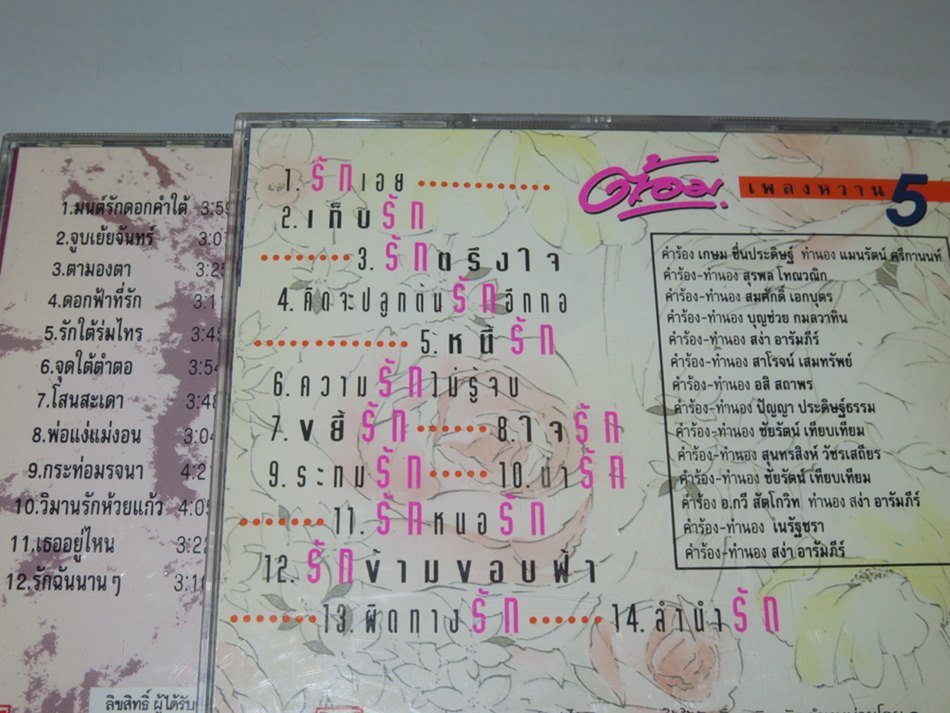 1.มนต์รักดอกคำใต้ 3:59
2.จูบเย้ยจันทร์ 3:07
3.ตามองตา 3:25
4.ดอกฟ้าที่รัก
5.รักใต้ร่มไทร 3:45
6.จุดใต้ตำตอ 3:54
7.โสนสะเดา 3:48
8.พ่อแง่แม่งอน 3:04
9.กระท่อมรจนา
10.วิมานรักห้วยแก้ว 4:05
11.เธออยู่ไหน 3:22
12.รักฉันนาน ๆ
ลิขสิทธิ์ ผู้ได้รับ
ต้อม
เพลงหวาน 5
1. รักเอย
2. เก็บรัก
3. รักตรึงใจ
4. คิดจะปลูกต้นรักอีกกอ
5. หนี้รัก
6. ความรักไม่รู้จบ
7. ขยี้รัก 8. ใจรัก
9. ระทมรัก 10. น่ารัก
11. รักหนอรัก
12. รักข้ามขอบฟ้า
13. ผิดทางรัก 14. ลำนำรัก
คำร้อง เกษม ชื่นประดิษฐ์ ทำนอง แมนรัตน์ ศรีกานนท์
คำร้อง-ทำนอง สุรพล โทณวณิก
คำร้อง-ทำนอง สมศักดิ์ เอกบุตร
คำร้อง-ทำนอง บุญช่วย กมลวาทิน
คำร้อง-ทำนอง สง่า อารัมภีร์
คำร้อง-ทำนอง สาโรจน์ เสมทรัพย์
คำร้อง-ทำนอง อสิ สถาพร
คำร้อง-ทำนอง ปัญญา ประดิษฐ์ธรรม
คำร้อง-ทำนอง ชัยรัตน์ เทียบเทียม
คำร้อง-ทำนอง สุนทรสิงห์ วัชรเสถียร
คำร้อง-ทำนอง ชัยรัตน์ เทียบเทียม
คำร้อง อ.กวี สัตโกวิท ทำนอง สง่า อารัมภีร์
คำร้อง-ทำนอง ไนรัฐชรา
คำร้อง-ทำนอง สง่า อารัมภีร์